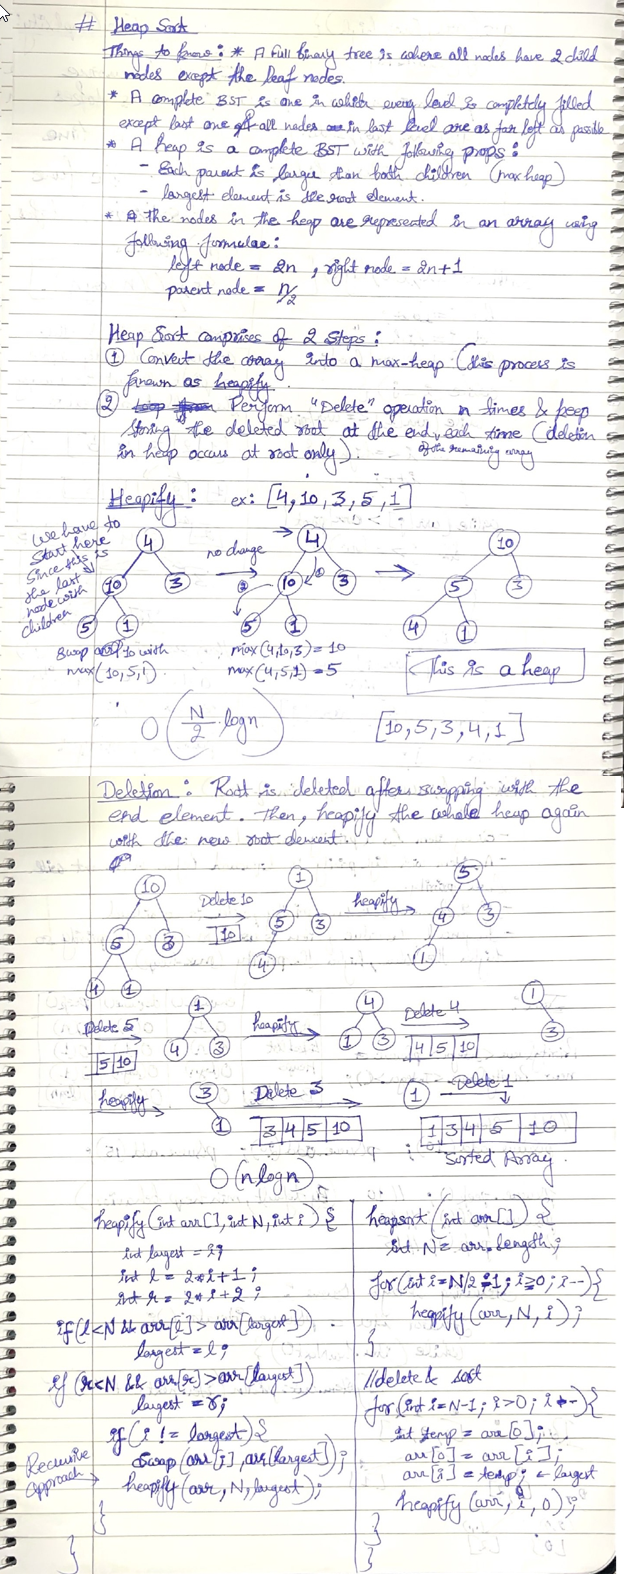 # Heap Sort
Things to know: * A full binary tree is where all nodes have 2 child
nodes except the leaf nodes.
* A complete BST is one in which every level is completely filled
except last one & all nodes in last level are as far left as possible
* A heap is a complete BST with following props:
- Each parent is larger than both children (max heap)
- largest element is the root element.
* The nodes in the heap are represented in an array using
following formulae:
left node = 2n , right node = 2n+1
parent node = n/2
Heap Sort comprises of 2 Steps:
① Convert the array into a max-heap (this process is
known as heapify.
② Perform "Delete" operation n times & keep
storing the deleted root at the end, each time (deletion
of the remaining array
in heap occurs at root only).
Heapify: ex: [4,10,3,5,1]
We have to
start here
since this is
the last
node with
children
4
10 3
5 1
no change
4
10 3
5 1
① ②
10
5 3
4 1
Swap 10 with
max(10,5,1)
max(4,10,3) = 10
max(4,5,1) = 5
This is a heap
O(N/2 logn)
[10,5,3,4,1]
Deletion: Root is deleted after swapping with the
end element. Then, heapify the whole heap again
with the new root element.
10
5 3
4 1
Delete 10
10
1
5 3
4
heapify
5
4 3
1
Delete 5
5 10
1
4 3
heapify
4
1 3
Delete 4
4 5 10
1
3
heapify
3
1
Delete 3
3 4 5 10
1
Delete 1
1 3 4 5 10
Sorted Array
O(nlogn)
heapify(int arr[], int N, int i) {
int largest = i;
int l = 2*i+1;
int r = 2*i+2;
if(l<N && arr[l] > arr[largest])
largest = l;
if (r<N && arr[r] > arr[largest])
largest = r;
if (i != largest) {
Swap (arr[i], arr[largest]);
Recursive
Approach →
heapify(arr, N, largest);
}
}
heapsort (int arr[]) {
int N = arr.length;
for(int i=N/2-1; i≥0; i--){
heapify(arr, N, i);
}
//delete & sort
for(int i=N-1; i>0; i--){
int temp = arr[0];
arr[0] = arr[i];
arr[i] = temp; ← largest
heapify(arr, i, 0);
}
}